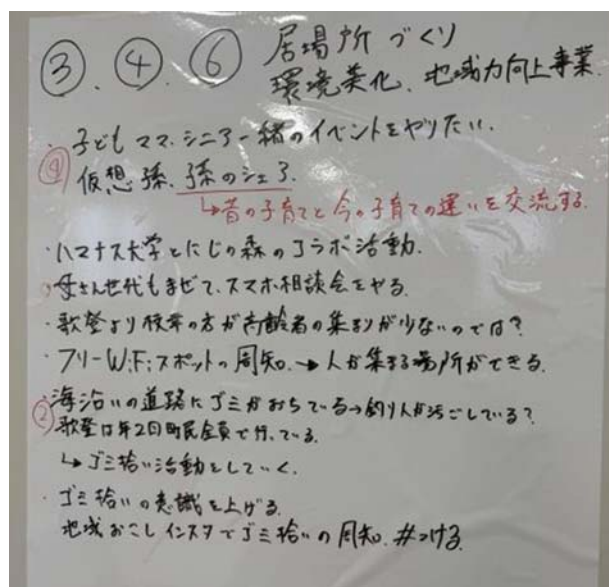 ③.④.⑥ 居場所づくり
環境美化、地域力向上事業
・子どもママ、シニア一緒のイベントをやりたい.
④ 仮想孫、孫のシェア.
↳昔の子育てと今の子育ての違いを交流する.
・ハマナス大学とにじの森のコラボ活動.
・母さん世代もまぜて、スマホ相談会をやる.
・歌登より枝幸の方が高齢者の集まりが少ないのでは?
・フリーWiFiスポットの周知.→人が集まる場所ができる.
・海沿いの道路にゴミがおちている→釣り人が汚ごしている?
② 歌登は年2回町民全員で行っている.
↳ゴミ拾い活動をしていく.
・ゴミ拾いの意識を上げる.
地域おこしインスタでゴミ拾いの周知.#つける.